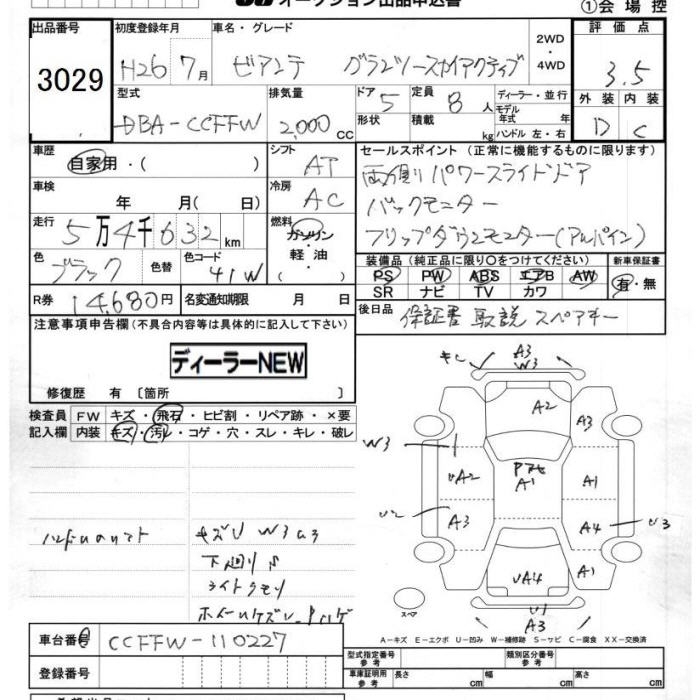 オークション出品申込書
①会場控
出品番号 初度登録年月 車名・グレード 2WD・4WD 評価点
3029 H26年7月 ビアンテ グランツースカイアクティブ 3.5
型式 排気量 ドア 5 定員 8人 ディーラー・並行 外装 内装
DBA-CCFFW 2,000cc 形状 積載 kg モデル年式 年式 ハンドル 左・右 D C
車歴 シフト セールスポイント (正常に機能するものに限ります)
自家用・( ) AT 両側パワースライドドア
車検 年 月( 日) 冷房 AC バックモニター
走行 5万4千632km 燃料 ガソリン・軽油・( ) フリップダウンモニター(アルパイン)
色 ブラック 色替 色コード 41W
装備品 (純正品に限り○をつけてください) 新車保証書
PS PW ABS エアB AW 有・無
SR ナビ TV カワ
R券 14,680円 名変通知期限 月 日 後日品 保証書 取説 スペアキー
注意事項申告欄(不具合内容等は具体的に記入して下さい)
ディーラーNEW
修復歴 有〔箇所 〕
検査員 FW キズ・飛石・ヒビ割・リペア跡・×要
記入欄 内装 キズ・汚レ・コゲ・穴・スレ・キレ・破レ
キズU W3 U3
下廻りS
ライトクモリ
ホイールキズ
A3
W3
A2
A3
W3
UA2
A1
A1
U2
A3
A4
U3
UA4
A1
U1
A3
スペア
A-キズ E-エクボ U-凹み W-補修跡 S-サビ C-腐食 XX-交換済
車台番号 CCFFW-110227
登録番号
型式指定番号 参考 類別区分番号 参考
車庫証明用 参考 長さ cm 幅 cm 高さ cm